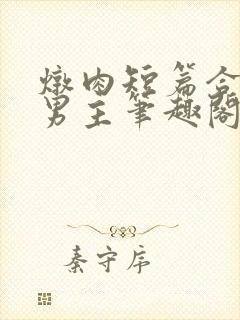 燉肉短篇合
男主筆趣閣
秦守序